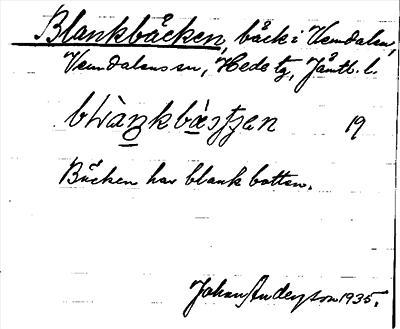 Blankbäcken, bäck i Vemdalen,
Vemdalens sn, Hede tg, Jämtl. l.
19
Bäcken har blank botten.
Johan Anderson 1935.